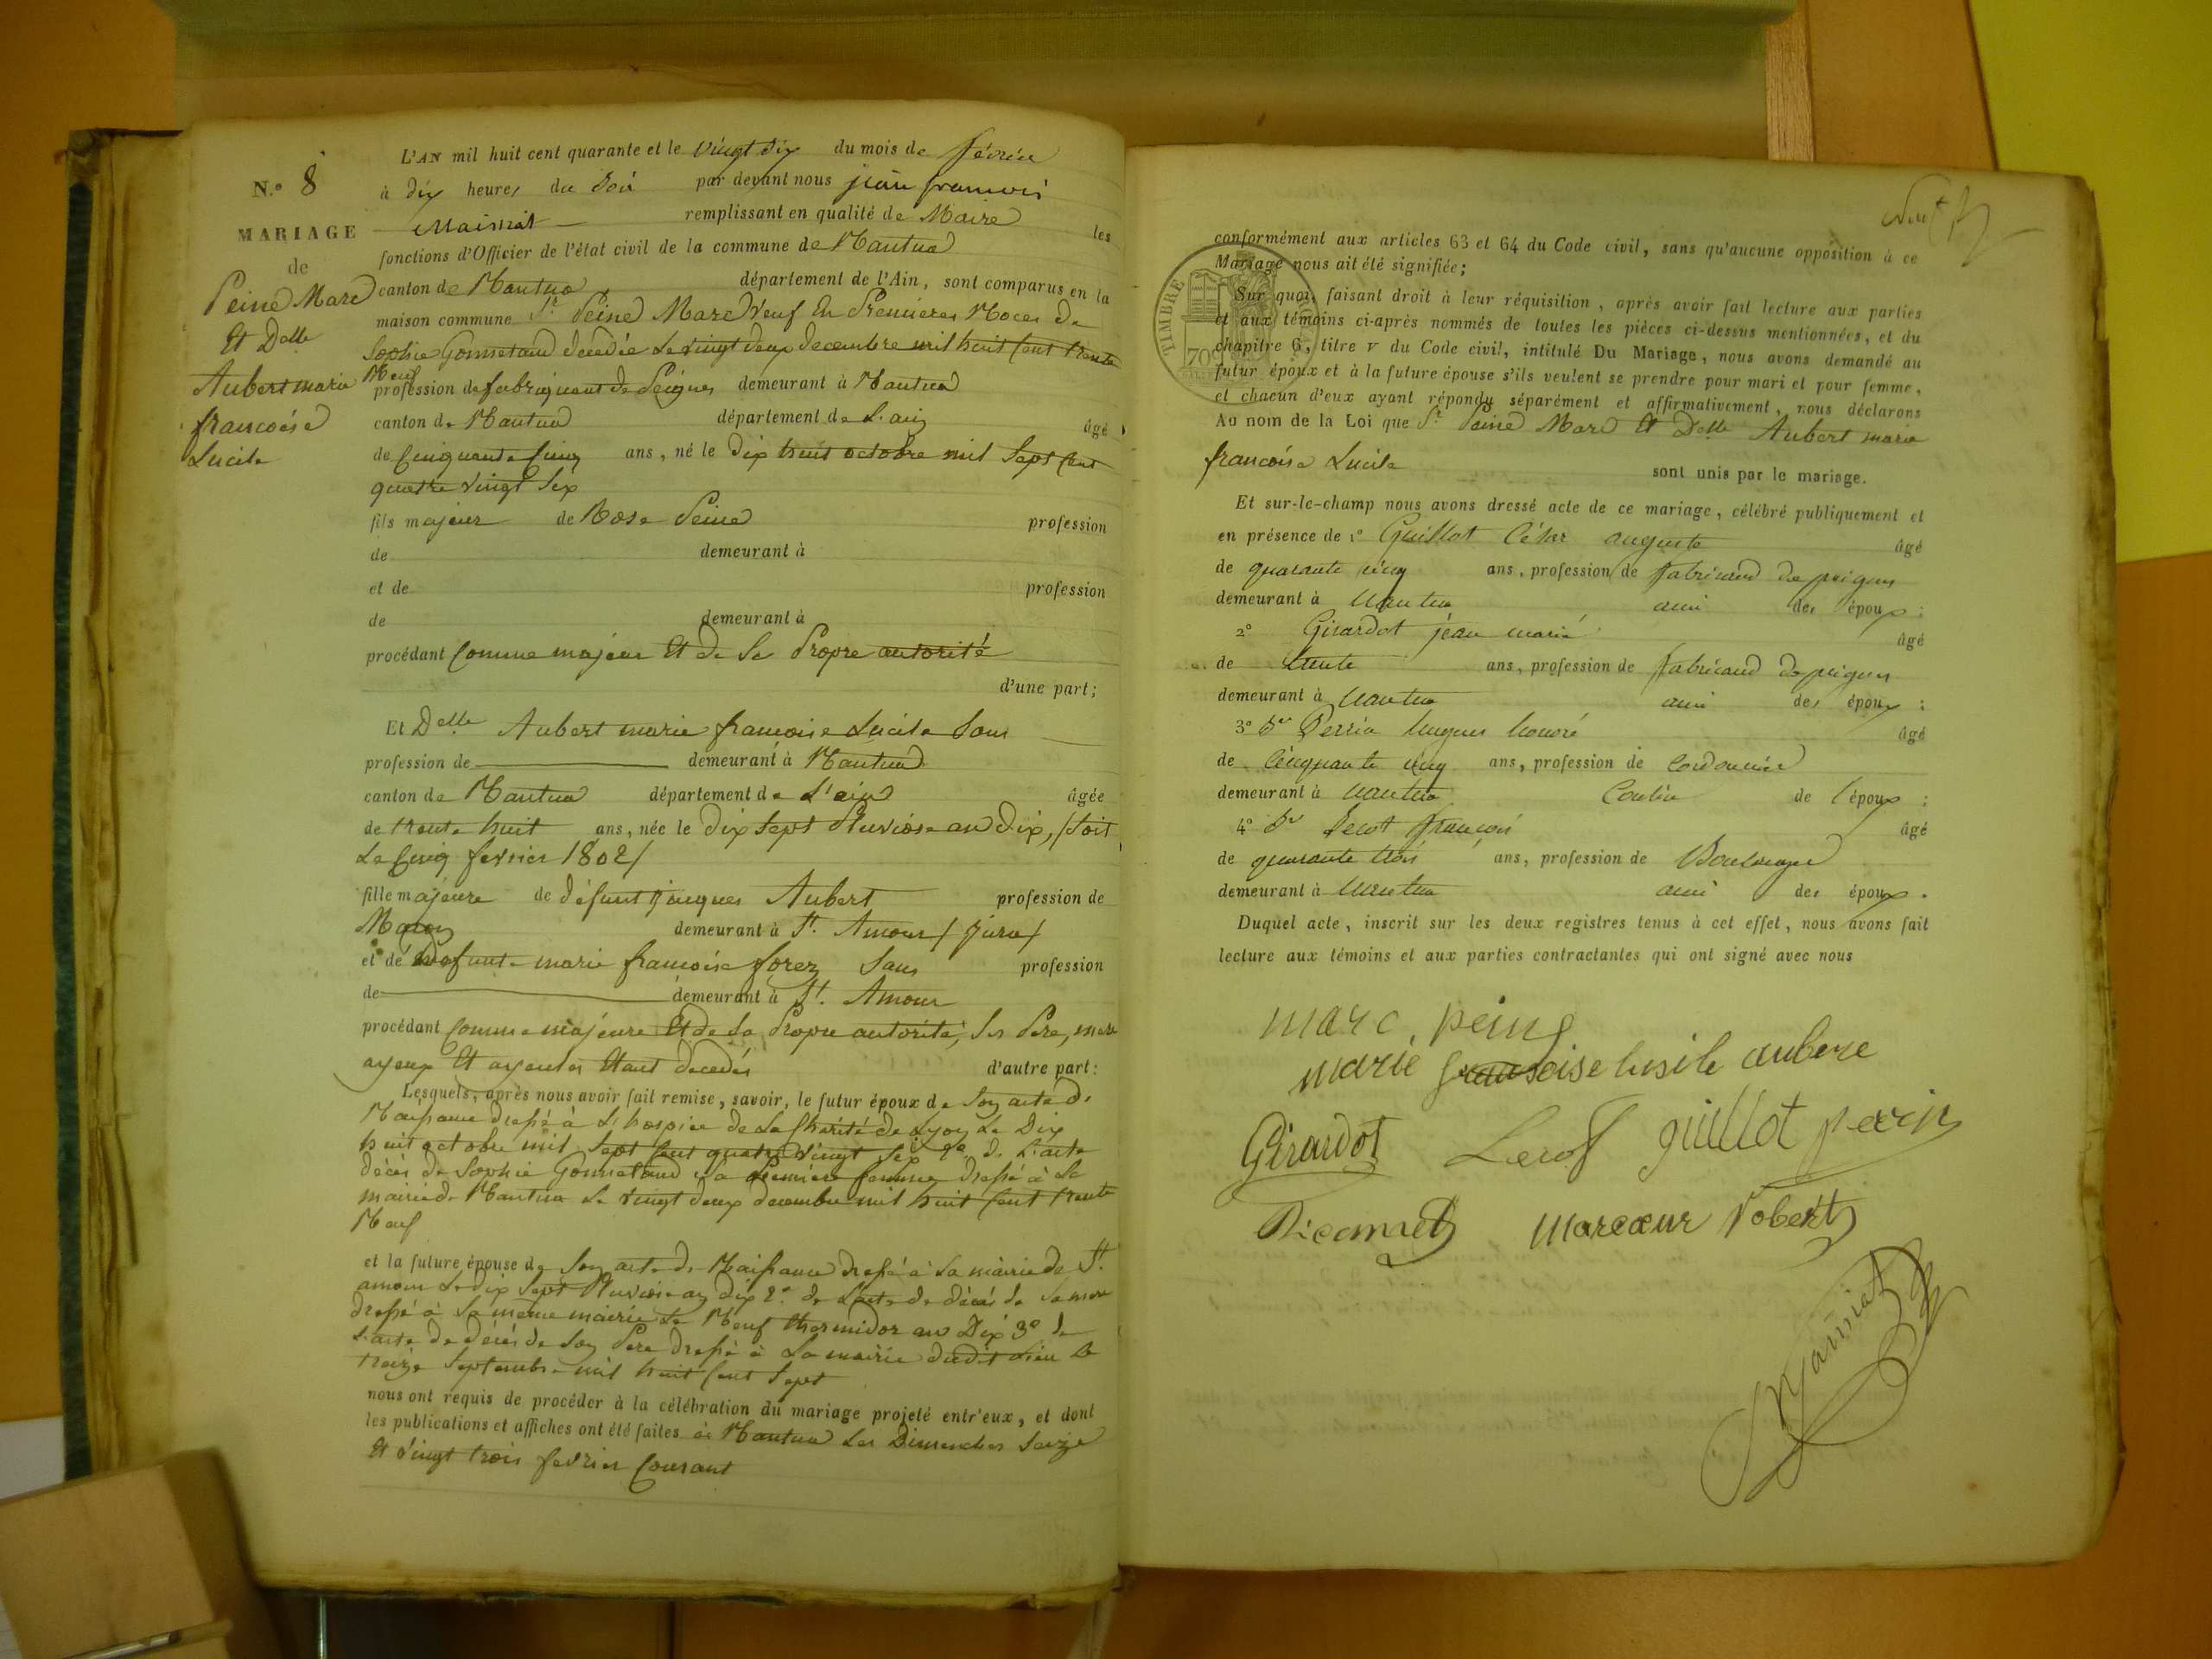 N.o 8
MARIAGE
de
Peine Marc
Et Delle
Aubert marie
francoise
Lucile
L'AN mil huit cent quarante et le vingt six du mois de février
à dix heures du soir par devant nous jean francois
Mainiat remplissant en qualité de Maire les
fonctions d'Officier de l'état civil de la commune de Nantua
canton de Nantua département de l'Ain, sont comparus en la
maison commune Sr Peine Marc Veuf En Premieres Noces de
Sophie décédée Le vingt deux decembre mil huit Cent trente
Neuf
profession de fabriquant de Peignes demeurant à Nantua
canton de Nantua département de L'ain âgé
de Cinquante Cinq ans, né le Dix huit octobre mil Sept Cent
quatre vingt Six
fils majeur de Rose Peine profession
de demeurant à
et de profession
de demeurant à
procédant Comme majeur Et de Sa Propre autorité
d'une part;
Et Delle Aubert marie francoise Lucile Sans
profession de demeurant à Nantua
canton de Nantua département de L'ain âgée
de trente huit ans, née le Dix Sept Pluviose an Dix, (Soit
Le Cinq fevrier 1802/
fille majeure de défunt jacques Aubert profession de
Maçon demeurant à St. Amour / Jura/
et de Defunte marie francoise forez Sans profession
de demeurant à St. Amour
procédant Comme majeure Et de Sa Propre autorité, Ses Pere, mere
ayeux Et ayeules Etant decedés d'autre part:
Lesquels, après nous avoir fait remise, savoir, le futur époux de Son acte de
Naissance dressé à L'hospice de La Charité de Lyon Le Dix
huit octobre mil Sept Cent quatre vingt Six 2o. de L'acte
décès de Sophie Sa Premiere femme dressé à La
mairie de Nantua Le vingt deux decembre mil huit Cent trente
Neuf
et la future épouse de Son acte de Naissance dressé à La mairie de St.
amour Le dix Sept Pluviose an dix 2o. de L'acte de décès de Sa mere
dressé à La même mairie Le Neuf thermidor an Dix 3o de
L'acte de décès de Son Pere dressé à La mairie dudit Lieu Le
treize Septembre mil huit Cent Sept
nous ont requis de procéder à la célébration du mariage projeté entr'eux, et dont
les publications et affiches ont été faites à Nantua Les Dimanches Seize
Et vingt trois fevrier Courant
TIMBRE
conformément aux articles 63 et 64 du Code civil, sans qu'aucune opposition à ce
Mariage nous ait été signifiée;
Sur quoi, faisant droit à leur réquisition, après avoir fait lecture aux parties
et aux témoins ci-après nommés de toutes les pièces ci-dessus mentionnées, et du
chapitre 6, titre v du Code civil, intitulé Du Mariage, nous avons demandé au
futur époux et à la future épouse s'ils veulent se prendre pour mari et pour femme,
et chacun d'eux ayant répondu séparément et affirmativement, nous déclarons
Au nom de la Loi que Sr. Peine Marc Et Delle Aubert marie
francoise Lucile sont unis par le mariage.
Et sur-le-champ nous avons dressé acte de ce mariage, célébré publiquement et
en présence de 1o Guillot César auguste âgé
de quarante cinq ans, profession de fabricand de peignes
demeurant à nantua ami des époux;
2o Girardot jean marie âgé
de trente ans, profession de fabricand de peignes
demeurant à nantua ami des époux;
3o Sr Perrin hugues honoré âgé
de Cinquante cinq ans, profession de Cordonnier
demeurant à nantua Cousin de l'époux;
4o Sr francois âgé
de quarante trois ans, profession de Boulanger
demeurant à nantua ami des époux.
Duquel acte, inscrit sur les deux registres tenus à cet effet, nous avons fait
lecture aux témoins et aux parties contractantes qui ont signé avec nous
marc peine
marie fransoise lusile aubere
Girardot guillot perin
marcœur Robert
Mainiat